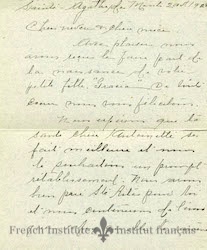 Sainte Agathe des Monts 2 oct 192
Cher neveu & chère nièce
Avec plaisir nous
avons reçu le faire part de
la naissance de votre
petite fille "Gracia" De tout
coeur nous vous félicitons.
Nous espérons que la
santé chère Antoinette se
fait meilleure et nous
lui souhaitons un prompt
rétablissement. Nous avons
bien prié Ste Anne pour toi
et nous continuons de
French Institute Institut français